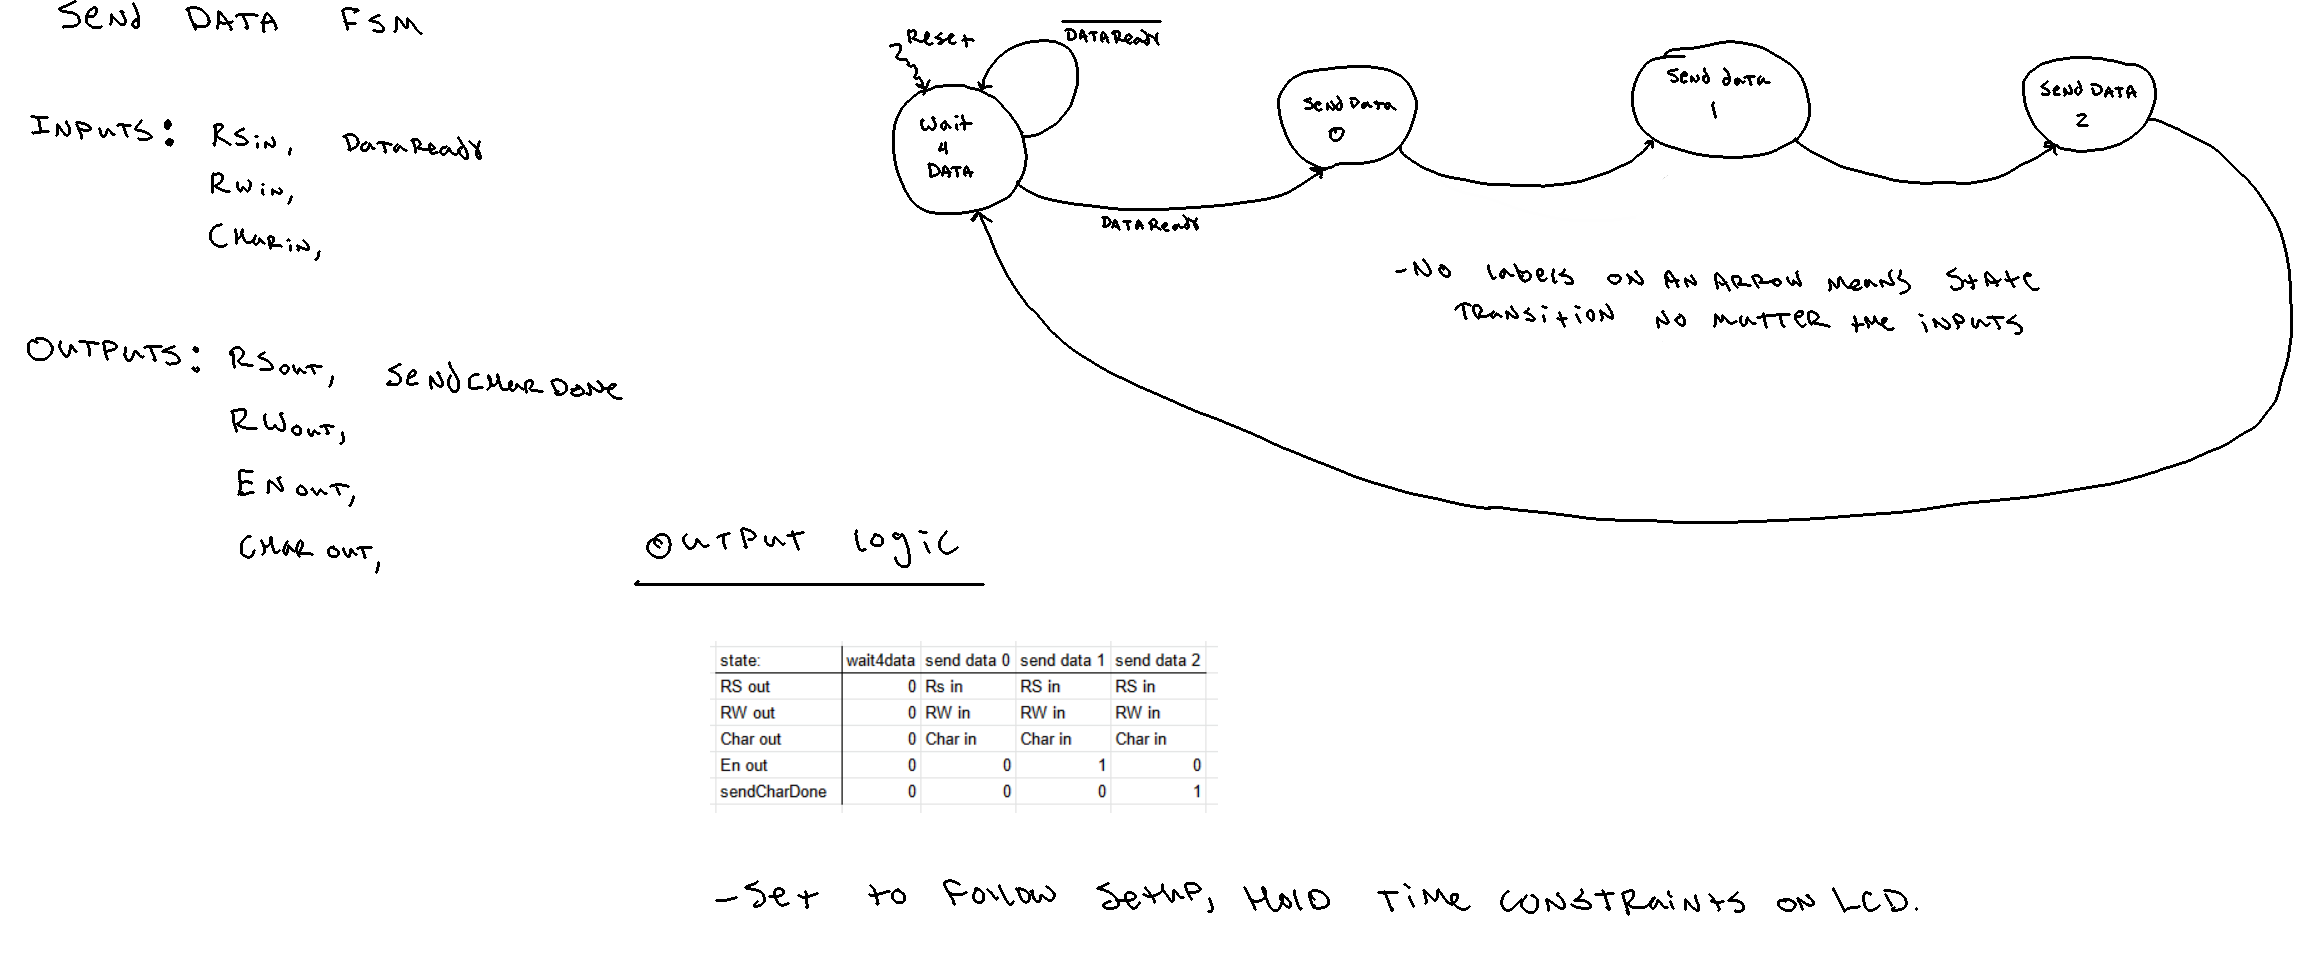 Send DATA FSM
INPUTS: RSin, DataReady
RWin,
CHARin,
OUTPUTS: RSout, SendCHARDone
RWout,
ENout,
CHAR out,
Reset
DATAReady
Wait
4
DATA
Send Data
0
Send data
1
Send DATA
2
DATAReady
-No labels on AN ARROW means State
TRANSition No matter the inputs
Output logic
state: wait4data send data 0 send data 1 send data 2
RS out 0 Rs in RS in RS in
RW out 0 RW in RW in RW in
Char out 0 Char in Char in Char in
En out 0 0 1 0
sendCharDone 0 0 0 1
-Set to Follow Setup, HOLD Time CONSTRaints on LCD.